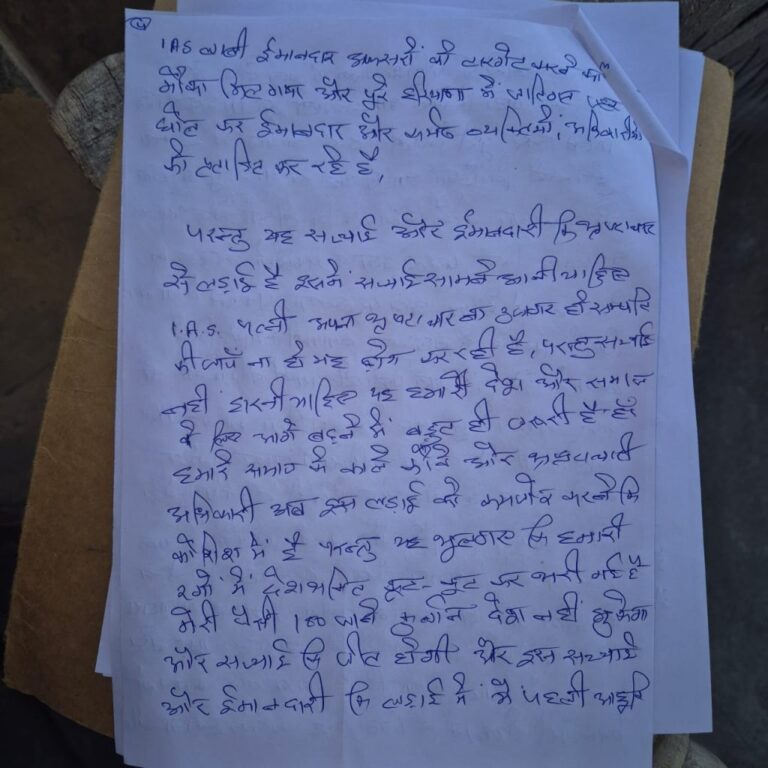 ④
IAS लाबी ईमानदार अफसरों को टारगेट करने का
मौका मिल गया और पूरे हरियाणा में जातिगत जहर
घोल कर ईमानदार और कर्मठ व्यक्तियों, अधिकारीयों
को प्रताडित कर रहे है,
परन्तु यह सच्चाई और ईमानदारी कि भ्रष्टाचार
से लडाई है इसमें सच्चाई सामने आनी चाहिए
I.A.S. पत्नी अपना भ्रष्टाचार का उजागर हो सम्पति
की जाचँ ना हो यह ढोंग कर रही है, परन्तु सच्चाई
नही हारनी चाहिए यह हमारे देश और समाज
के लिए आगे बढने में बहुत ही जरूरी है
हमारे समाज के काले और भ्रष्टाचारी
अधिकारी अब इस लड़ाई को कमजोर करने कि
कोशिश में है परन्तु यह भुलगए कि हमारी
रगों में देशभक्ति कूट-कूट कर भरी गई है
मेरी जैसी 100 जाने कुर्बान देश नही झुकेगा
और सच्चाई कि जीत होगी और इस सच्चाई
और ईमानदारी कि लडाई में मै पहली आहुति